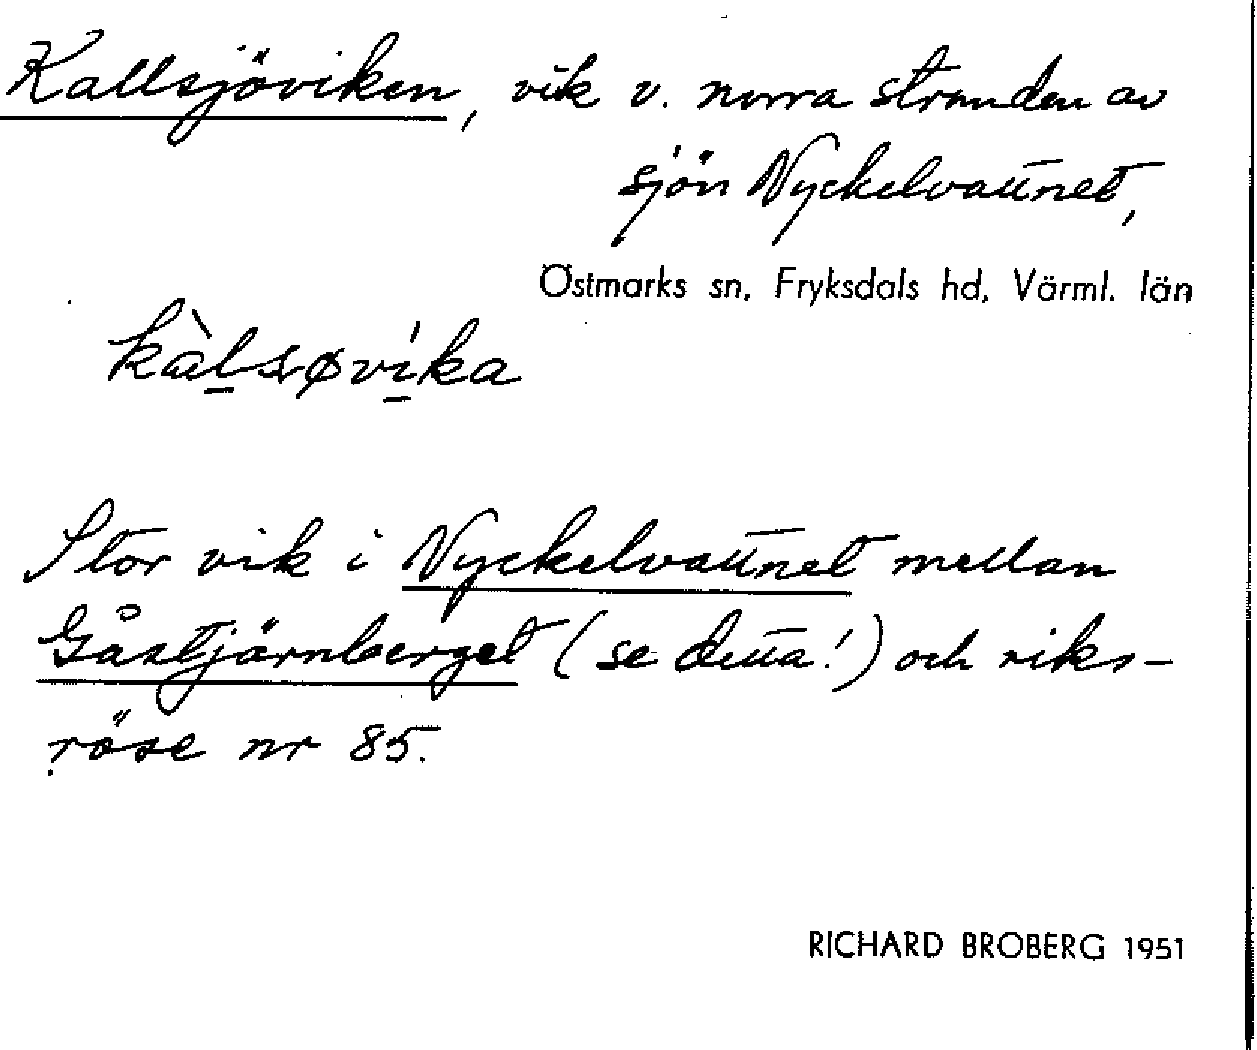 Kallsjöviken, vik v. norra stranden av
sjön Nyckelvattnet,
Östmarks sn, Fryksdals hd, Värml. län
kàlsøvíka
Stor vik i Nyckelvattnet mellan
Gåstjärnberget (se detta!) och riks-
röse nr 85.
RICHARD BROBERG 1951